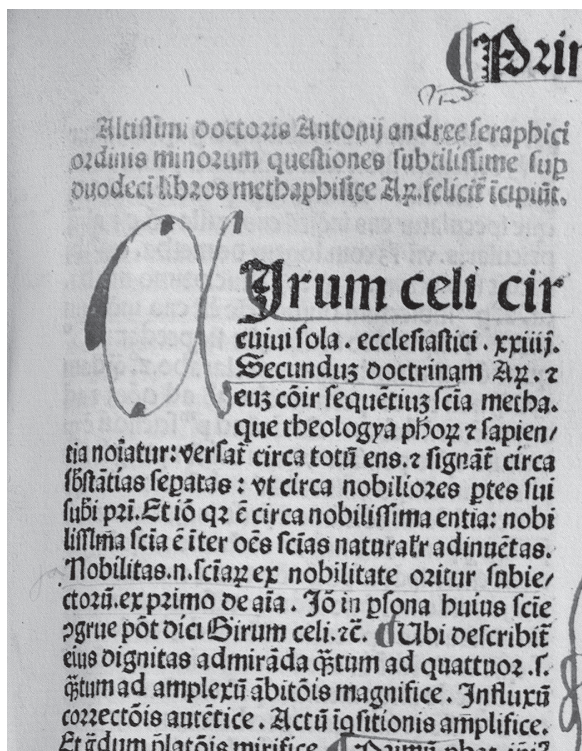 Prim
Altissimi doctoris Antonij andree seraphici
ordinis minorum questiones subtilissime sup
duodecĩ libros methaphisice Aꝝ. felicit̃ ĩcipiũt.
Jrum celi cir
cuiui sola. ecclesiastici. xxiiij.
Secunduꝫ doctrinam Aꝝ. ⁊
euꝫ cõir sequẽtiuꝫ sc̃ia metha.
que theologya ph̃oꝝ ⁊ sapien/
tia noĩatur: versat̃ circa totũ ens. ⁊ signãt̃ circa
sb̃stãtias sepatas: vt circa nobiliores ꝑtes sui
subĩ pri. Et iõ qꝛ ẽ circa nobilissima entia: nobi
lissĩma sc̃ia ẽ ĩter oẽs sc̃ias naturalr̃ adinuẽtas.
Nobilitas .n. sc̃iaꝝ ex nobilitate oritur subie/
ctorũ. ex primo de aĩa. Jõ in ꝑsona huius sc̃ie
ꝯgrue põt dici Girum celi. ⁊c̃. ¶ Ubi describit̃
eius dignitas admirãda q̃tum ad quattuor .s.
q̃tum ad amplexũ ãbitõis magnifice. Jnfluxũ
correctõis autẽtice. Actũ iq̃sitionis amplifice.
Et gᷓdum p̃latõis mirifice. ¶ Primũ